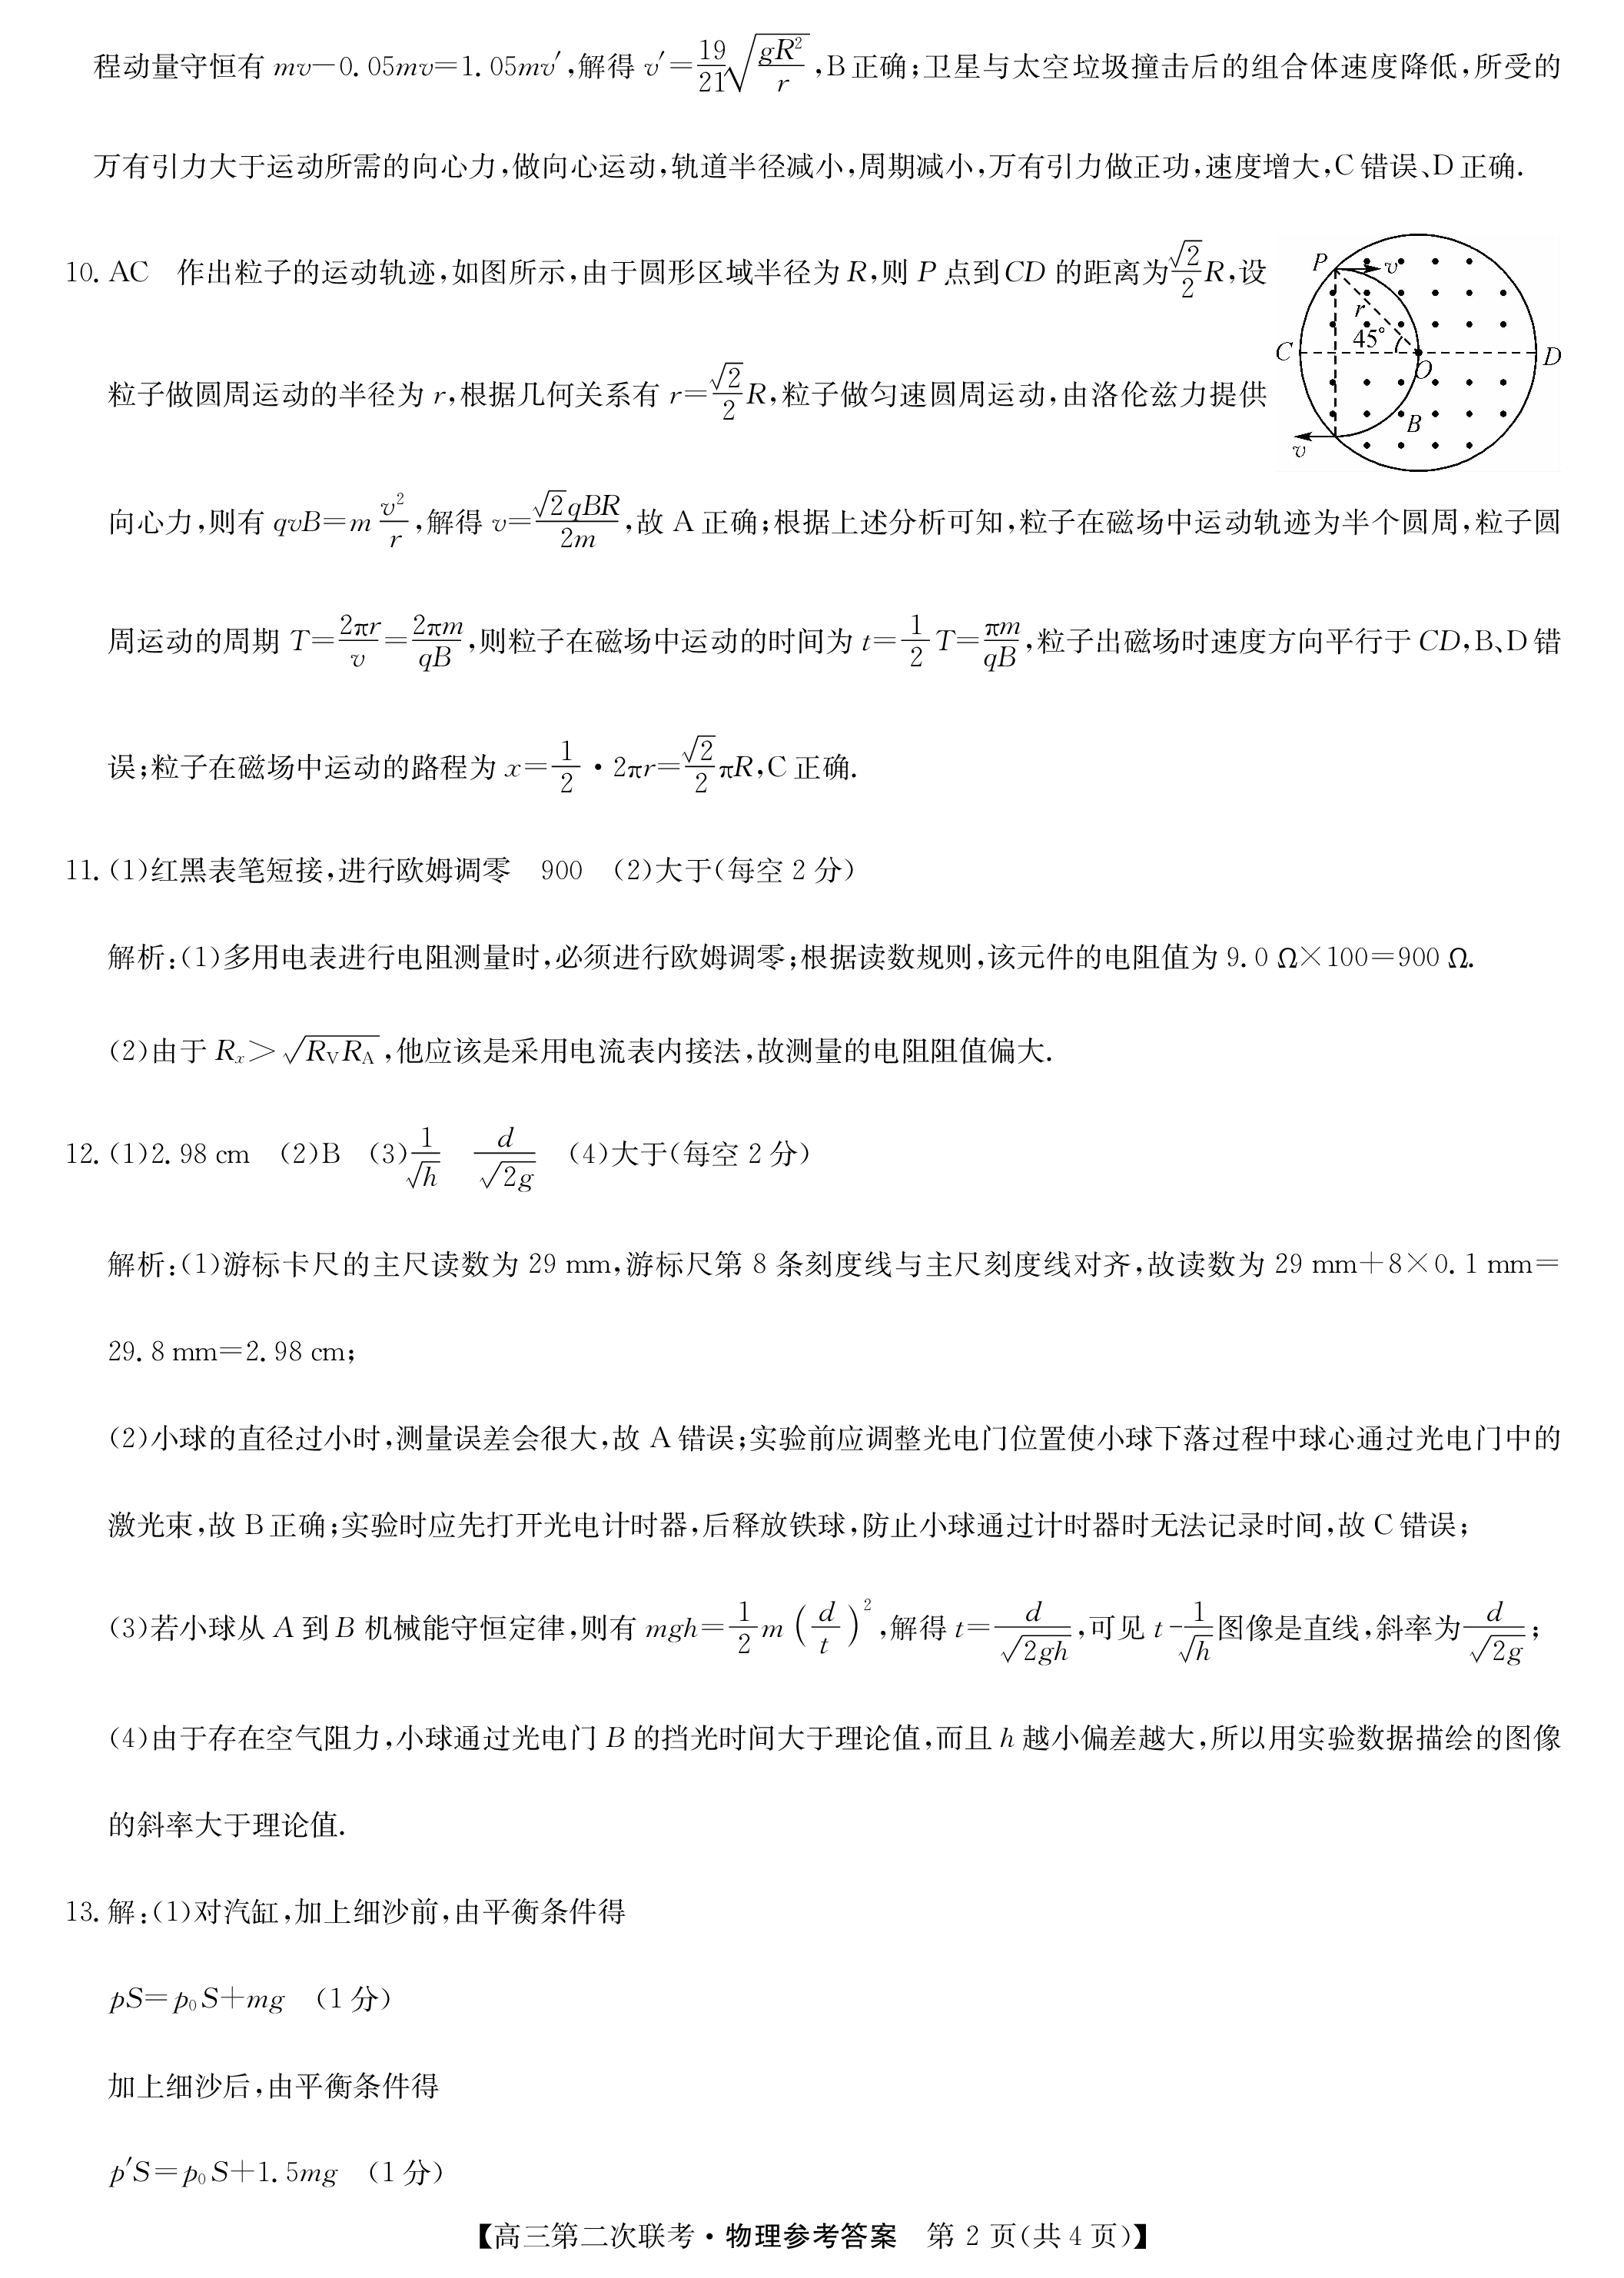 程动量守恒有 mv－0.05mv＝1.05mv′,解得 v′＝$\frac{19}{21}\sqrt{\frac{gR^2}{r}}$,B正确;卫星与太空垃圾撞击后的组合体速度降低,所受的
万有引力大于运动所需的向心力,做向心运动,轨道半径减小,周期减小,万有引力做正功,速度增大,C错误、D正确.
10. AC　作出粒子的运动轨迹,如图所示,由于圆形区域半径为R,则P点到CD的距离为$\frac{\sqrt{2}}{2}$R,设
粒子做圆周运动的半径为r,根据几何关系有r＝$\frac{\sqrt{2}}{2}$R,粒子做匀速圆周运动,由洛伦兹力提供
P
v
r
45°
C
O
D
B
v
向心力,则有qvB＝m$\frac{v^2}{r}$,解得v＝$\frac{\sqrt{2}qBR}{2m}$,故A正确;根据上述分析可知,粒子在磁场中运动轨迹为半个圆周,粒子圆
周运动的周期T＝$\frac{2πr}{v}$＝$\frac{2πm}{qB}$,则粒子在磁场中运动的时间为t＝$\frac{1}{2}$T＝$\frac{πm}{qB}$,粒子出磁场时速度方向平行于CD,B、D错
误;粒子在磁场中运动的路程为x＝$\frac{1}{2}$·2πr＝$\frac{\sqrt{2}}{2}$πR,C正确.
11. (1)红黑表笔短接,进行欧姆调零　900　(2)大于(每空2分)
解析:(1)多用电表进行电阻测量时,必须进行欧姆调零;根据读数规则,该元件的电阻值为9.0 Ω×100＝900 Ω.
(2)由于$R_x$＞$\sqrt{R_VR_A}$,他应该是采用电流表内接法,故测量的电阻阻值偏大.
12. (1)2.98 cm　(2)B　(3)$\frac{1}{\sqrt{h}}$　$\frac{d}{\sqrt{2g}}$　(4)大于(每空2分)
解析:(1)游标卡尺的主尺读数为29 mm,游标尺第8条刻度线与主尺刻度线对齐,故读数为29 mm＋8×0.1 mm＝
29.8 mm＝2.98 cm;
(2)小球的直径过小时,测量误差会很大,故A错误;实验前应调整光电门位置使小球下落过程中球心通过光电门中的
激光束,故B正确;实验时应先打开光电计时器,后释放铁球,防止小球通过计时器时无法记录时间,故C错误;
(3)若小球从A到B机械能守恒定律,则有mgh＝$\frac{1}{2}m\left(\frac{d}{t}\right)^2$,解得t＝$\frac{d}{\sqrt{2gh}}$,可见t-$\frac{1}{\sqrt{h}}$图像是直线,斜率为$\frac{d}{\sqrt{2g}}$;
(4)由于存在空气阻力,小球通过光电门B的挡光时间大于理论值,而且h越小偏差越大,所以用实验数据描绘的图像
的斜率大于理论值.
13. 解:(1)对汽缸,加上细沙前,由平衡条件得
pS＝p₀S＋mg　(1分)
加上细沙后,由平衡条件得
p′S＝p₀S＋1.5mg　(1分)
【高三第二次联考·物理参考答案　第2页(共4页)】